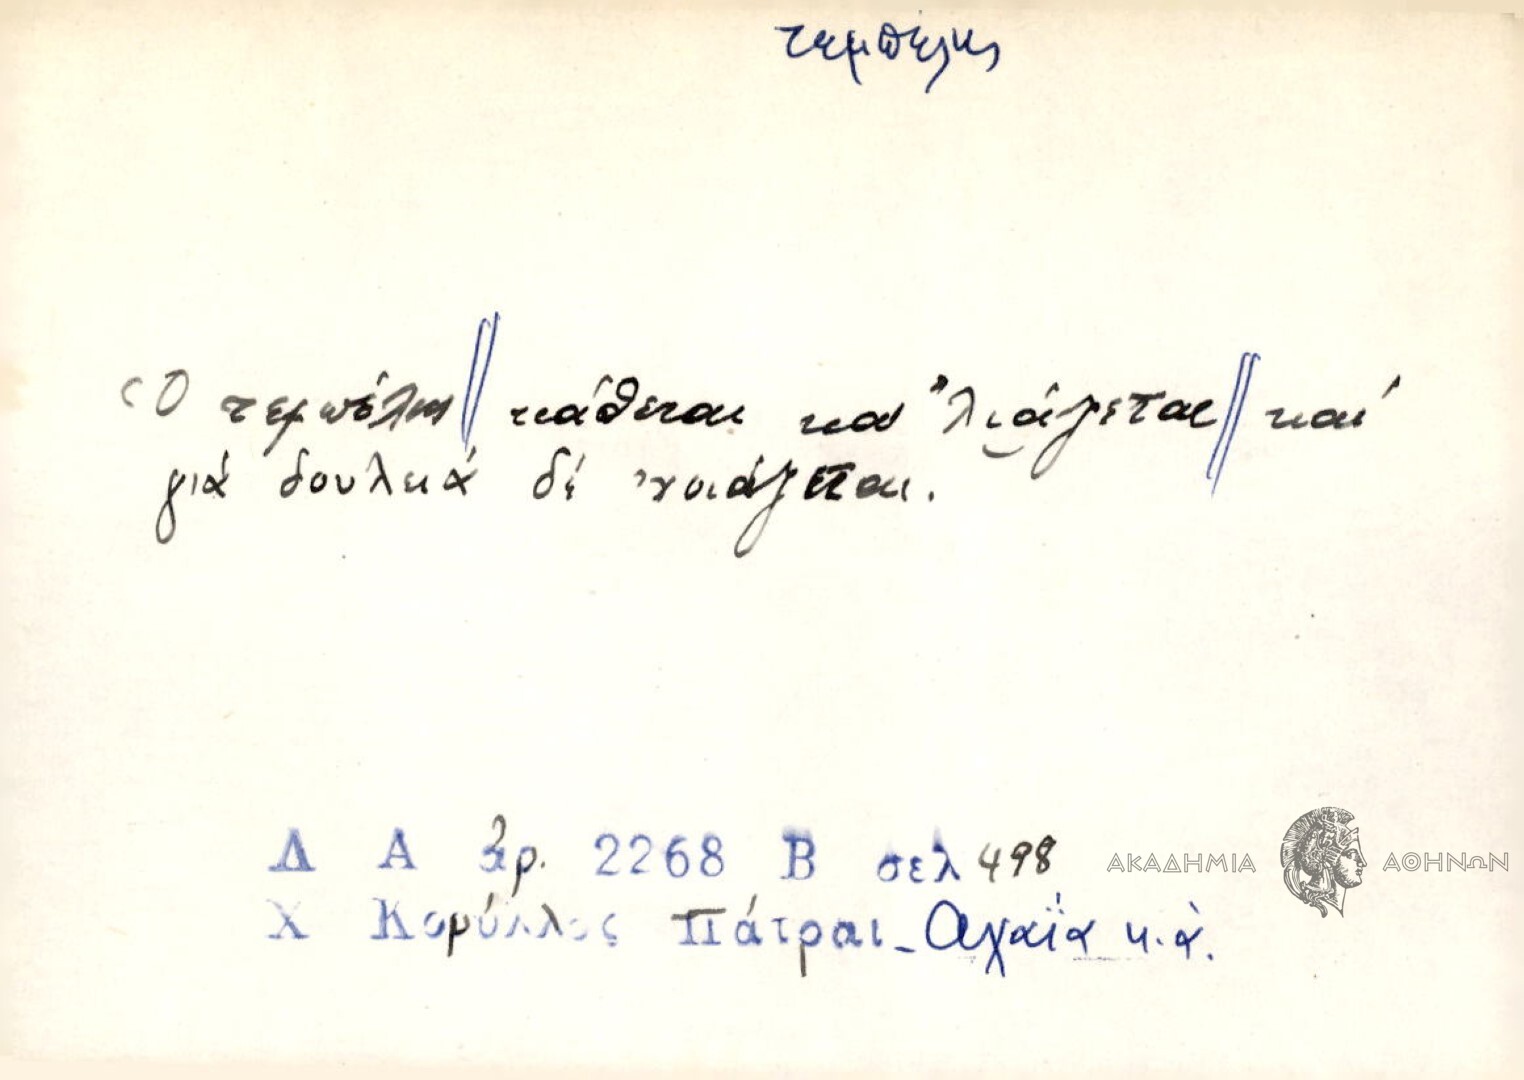 τεμπέλης
Ὁ τεμπέλης // κάθεται καὶ λιάζεται // καὶ
γιὰ δουλειὰ δὲ νοιάζεται.
Δ Α ἀρ. 2268 Β σελ 498
Χ Κορύλλος Πάτραι - Ἀχαΐα κ.ἀ.
ΑΚΑΔΗΜΙΑ ΑΘΗΝΩΝ